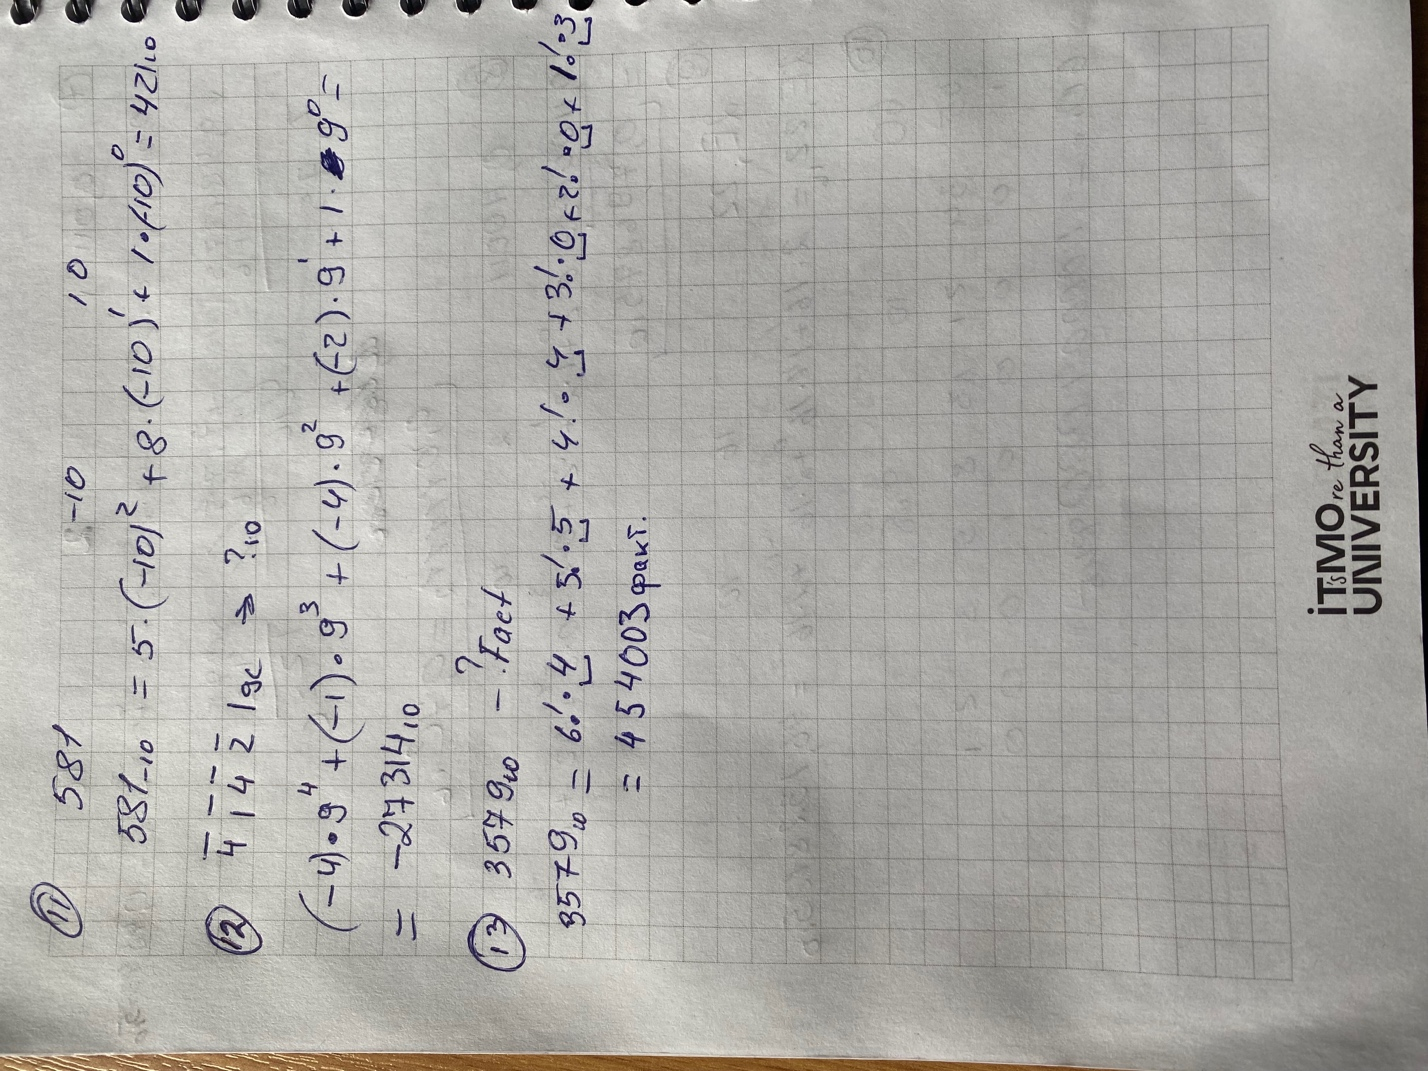 ⑪ 581 -10 10
581₋₁₀ = 5·(-10)² + 8·(-10)¹ + 1·(-10)⁰ = 421₁₀
⑫ 4̅ 1̅ 4̅ 2̅ 1₉c → ?₁₀
(-4)·9⁴ + (-1)·9³ + (-4)·9² + (-2)·9¹ + 1·9⁰ =
= -27314₁₀
⑬ 3579₁₀ - ?Fact
3579₁₀ = 6!·4 + 5!·5 + 4!·4 + 3!·0 + 2!·0 + 1!·3
= 454003факт.
iTsMOre than a
UNIVERSITY